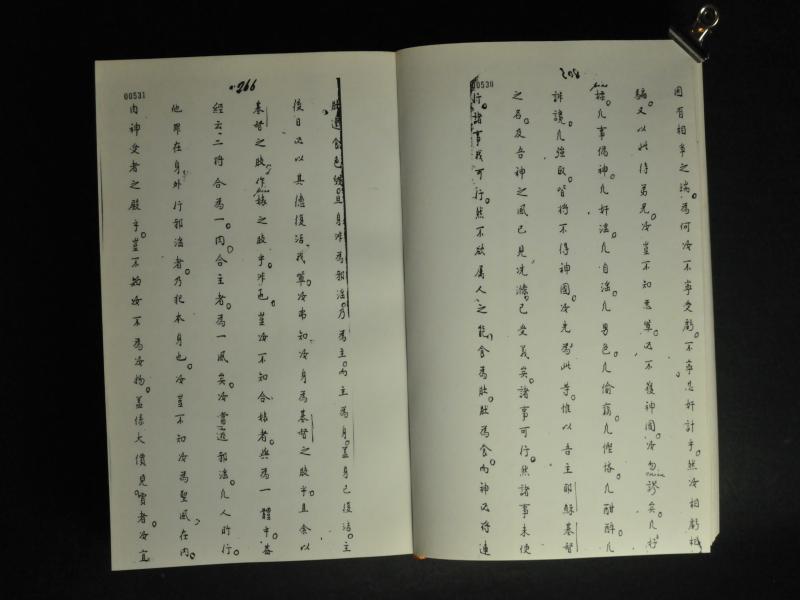 00530
208
因有相爭之端。為何汝不寧受虧。不寧忍奸計乎。然汝相虧相
騙。又以此待弟兄。汝豈不知惡輩必不獲神國。汝勿謬矣。凡好
婊。凡事偶神。凡奸淫。凡自淫。凡男色。凡偷竊。凡慳悋。凡酣醉。凡
誹謗。凡強取。皆將不得神國。汝先為此等。惟以吾主耶穌基督
之名。及吾神之風已見洗滌。已受義矣。諸事可行。然諸事未便
行。諸事我可行。然不欲屬人之能。食為肚。肚為食。而神必将連
00531
266
肚連食色。且身非為邪淫。乃為主。而主為身。蓋身已復活。主
後日必以其德復活我輩。汝弗知汝身為基督之肢乎。且余以
基督之肢。作婊之肢乎。非也。豈汝不知合婊者。與為一體乎。蓋
經云。二将合為一肉。合主者。為一風矣。汝當逃邪淫。凡人所行。
他罪在身外。行邪淫者。乃犯本身也。汝豈不知汝為聖風在內。
由神受者之殿乎。豈不知汝不為汝物。蓋係大價見買者。汝宜